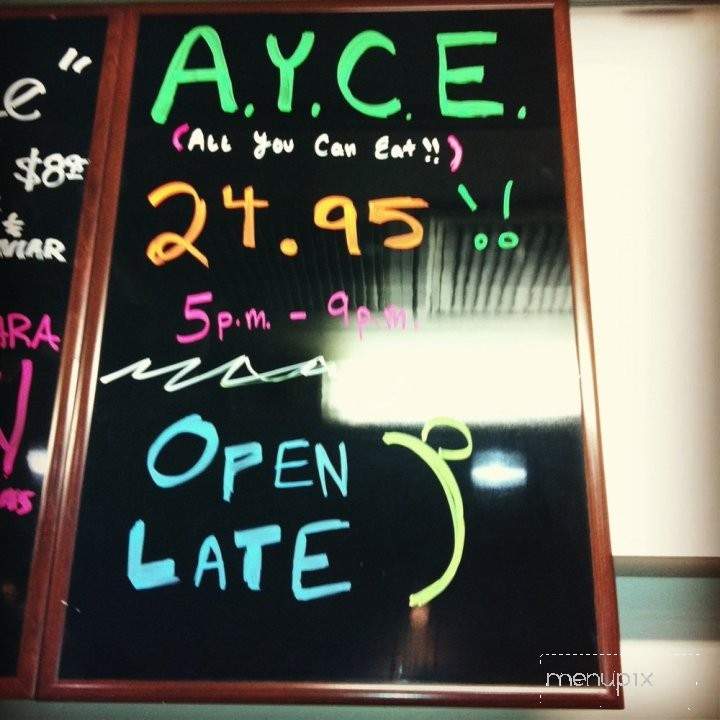 A.Y.C.E.
(All You Can Eat!!)
24.95 !!
5p.m. - 9p.m.
OPEN
LATE
e"
$8
&
ARA
menupix